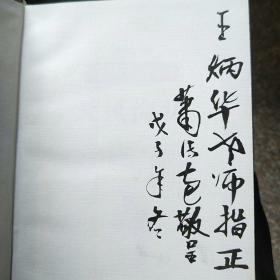 王炳华老师指正
萧沽敬呈
戊子年冬